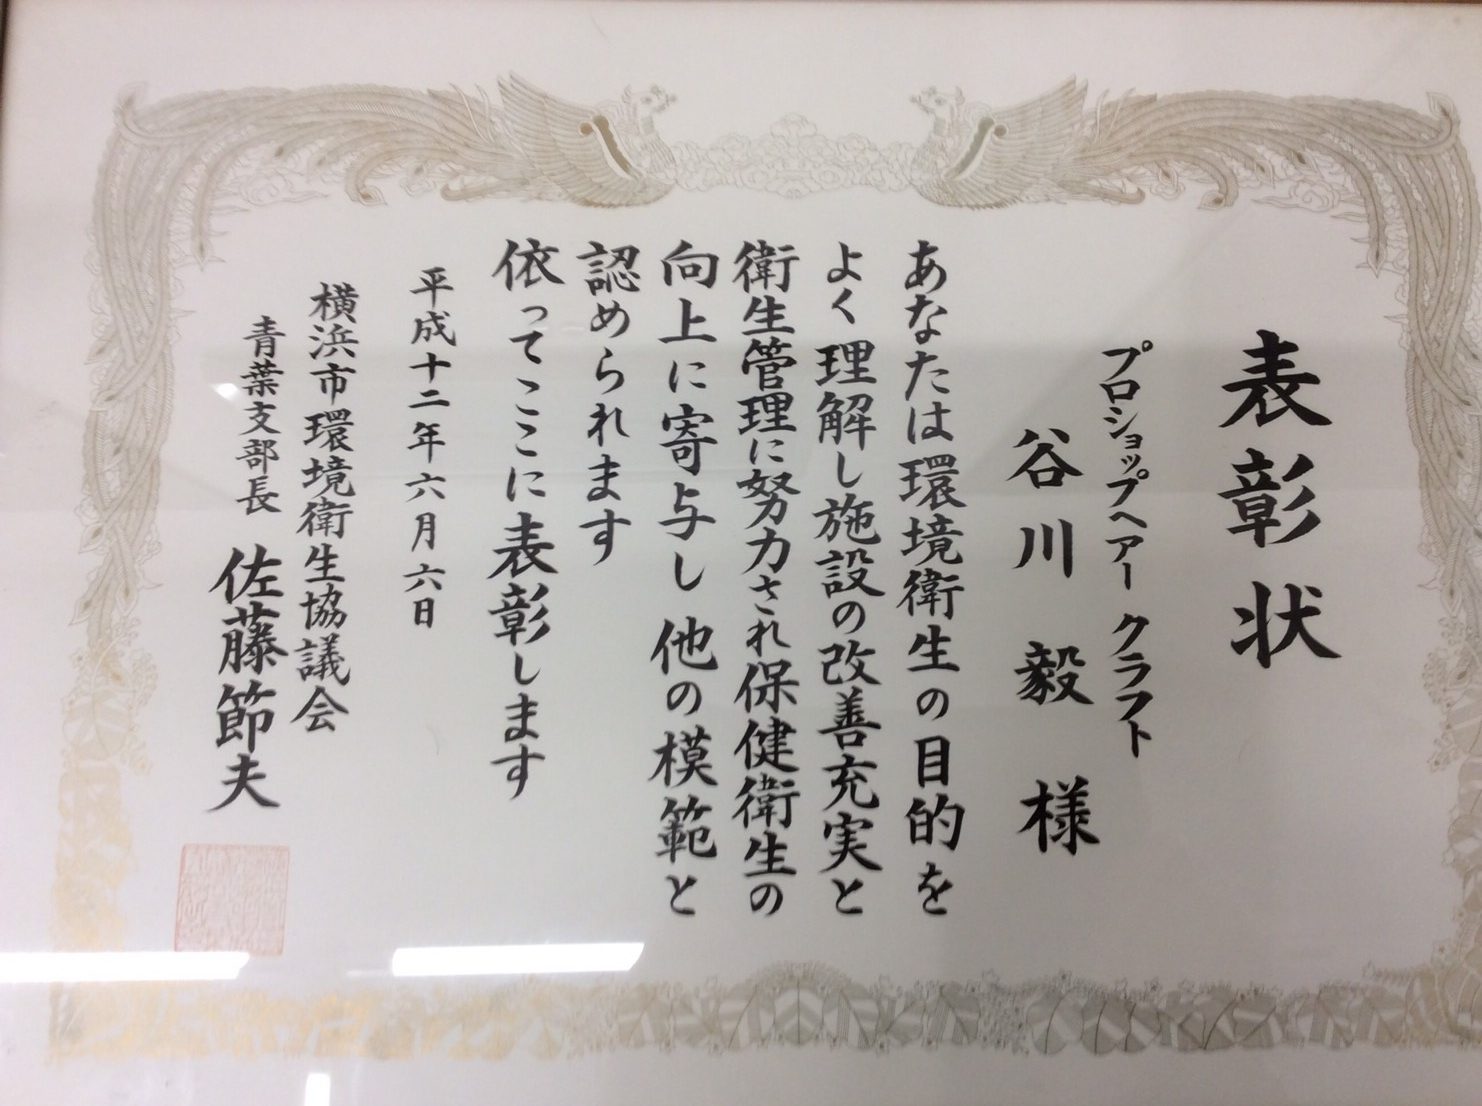 表彰状
プロショップヘアー クラフト
谷川 毅 様
あなたは環境衛生の目的を
よく理解し施設の改善充実と
衛生管理に努力され保健衛生の
向上に寄与し他の模範と
認められます
依ってここに表彰します
平成十二年六月六日
横浜市環境衛生協議会
青葉支部長 佐藤節夫